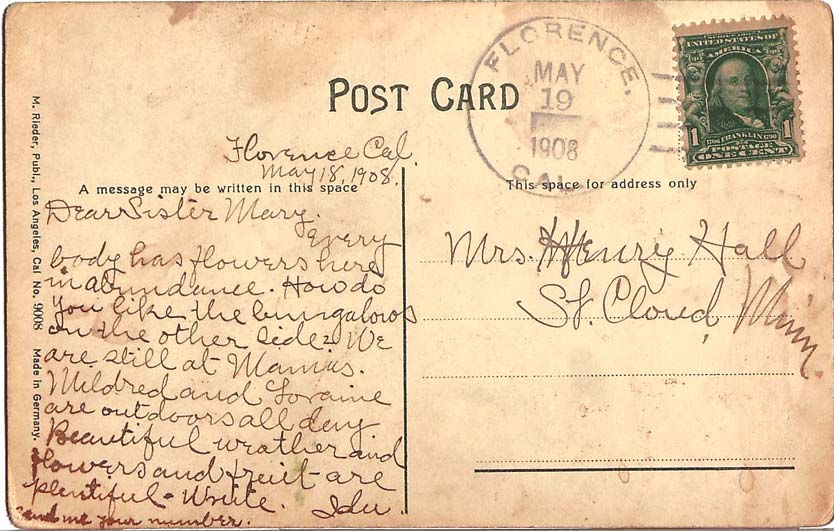 POST CARD
FLORENCE.
MAY
19
1908
CAL.
SERIES 1902
UNITED STATES OF
AMERICA
1 FRANKLIN 1
POSTAGE
ONE CENT
M. Rieder, Publ., Los Angeles, Cal No. 9008 Made in Germany.
Florence Cal.
May 18, 1908.
A message may be written in this space
This space for address only
Dear Sister Mary.
Every
body has flowers here
in abundance. How do
you like the bungalows
on the other side? We
are still at Mamas.
Mildred and Loraine
are outdoors all day
Beautiful weather and
flowers and fruit are
plentiful - Write. Ida
send me your number.
Mrs. Henry Hall
St. Cloud, Minn.